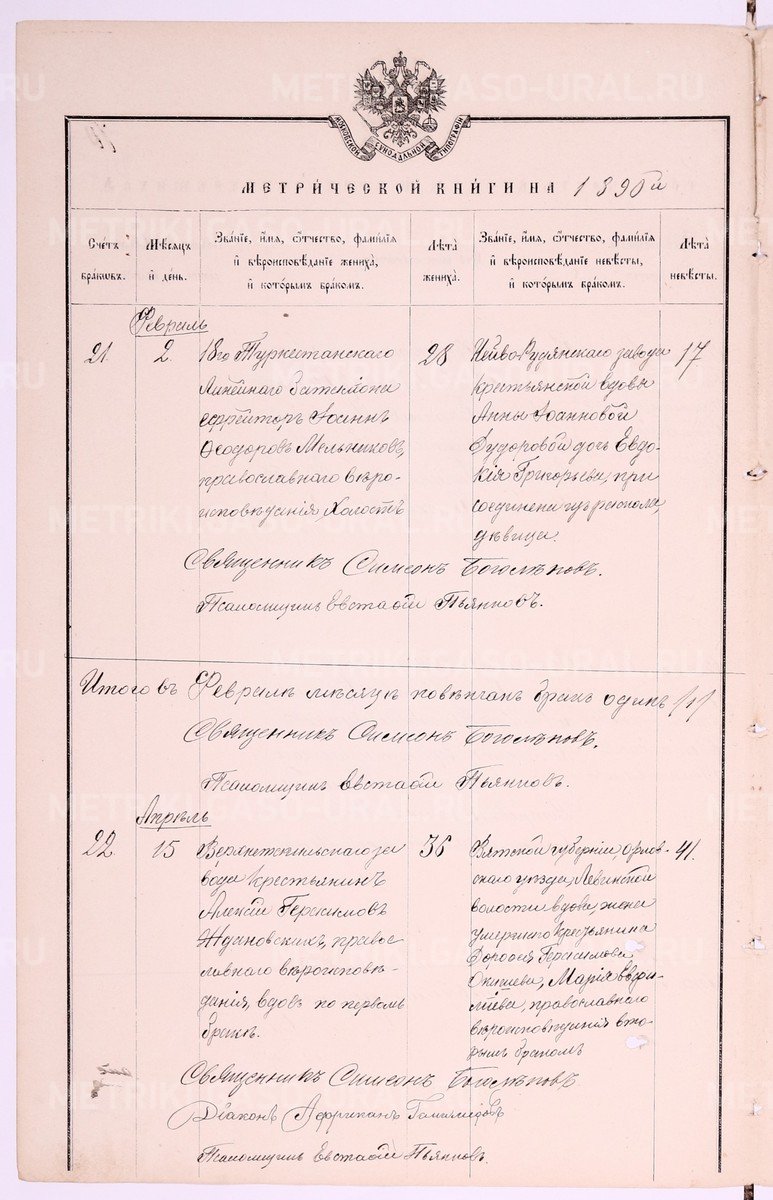 МОСКОВСКОЙ СѴНОДАЛЬНОЙ ТИПОГРАФІИ
МЕТРИЧЕСКОЙ КНИГИ НА
Счетъ браковъ.
Мѣсяцъ и день.
Званіе, имя, отчество, фамилія и вѣроисповѣданіе жениха, и которымъ бракомъ.
Лѣта жениха.
Званіе, имя, отчество, фамилія и вѣроисповѣданіе невѣсты, и которымъ бракомъ.
Лѣта невѣсты.
Февраль
21. 2. 18го Туркестанскаго
Линейнаго баталіона
ефрейторъ Іоаннъ
Ѳеодоровъ Мельниковъ,
православнаго вѣро-
исповѣданія, холостъ
28
Нейво-Рудянскаго завода
крестьянской вдовы
Анны Іоанновой
дочь Евдо-
кія Григорьева, при
соединена изъ раскола,
дѣвица.
17
Священникъ Симеонъ Боголѣповъ.
Псаломщикъ Евстафій Пьянковъ.
Итого въ Февралѣ мѣсяцѣ повѣнчанъ бракъ одинъ /1/
Священникъ Симеонъ Боголѣповъ.
Псаломщикъ Евстафій Пьянковъ.
Апрѣль
22. 15 Верхнетагильскаго за
вода крестьянинъ
Алексій Герасимовъ
Ждановскихъ, правос
лавнаго вѣроисповѣ-
данія, вдовъ по первомъ
бракѣ.
36
Вятской губерніи, Орлов-
скаго уѣзда, Левинской
волости вдова, жена
умершаго крестьянина
Дороѳея Герасимова
Марія
православнаго
вѣроисповѣданія вто-
рымъ бракомъ
41.
Священникъ Симеонъ Боголѣповъ
Діаконъ Африканъ
Псаломщикъ Евстафій Пьянковъ.
METRIKI.GASO-URAL.RU